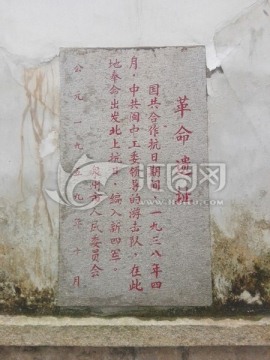 革命遗址
国共合作抗日期间,一九三八年四
月,中共闽中工委领导的游击队,在此
地奉命出发北上抗日,编入新四军。
市人民委员会
公元一九五九年十月